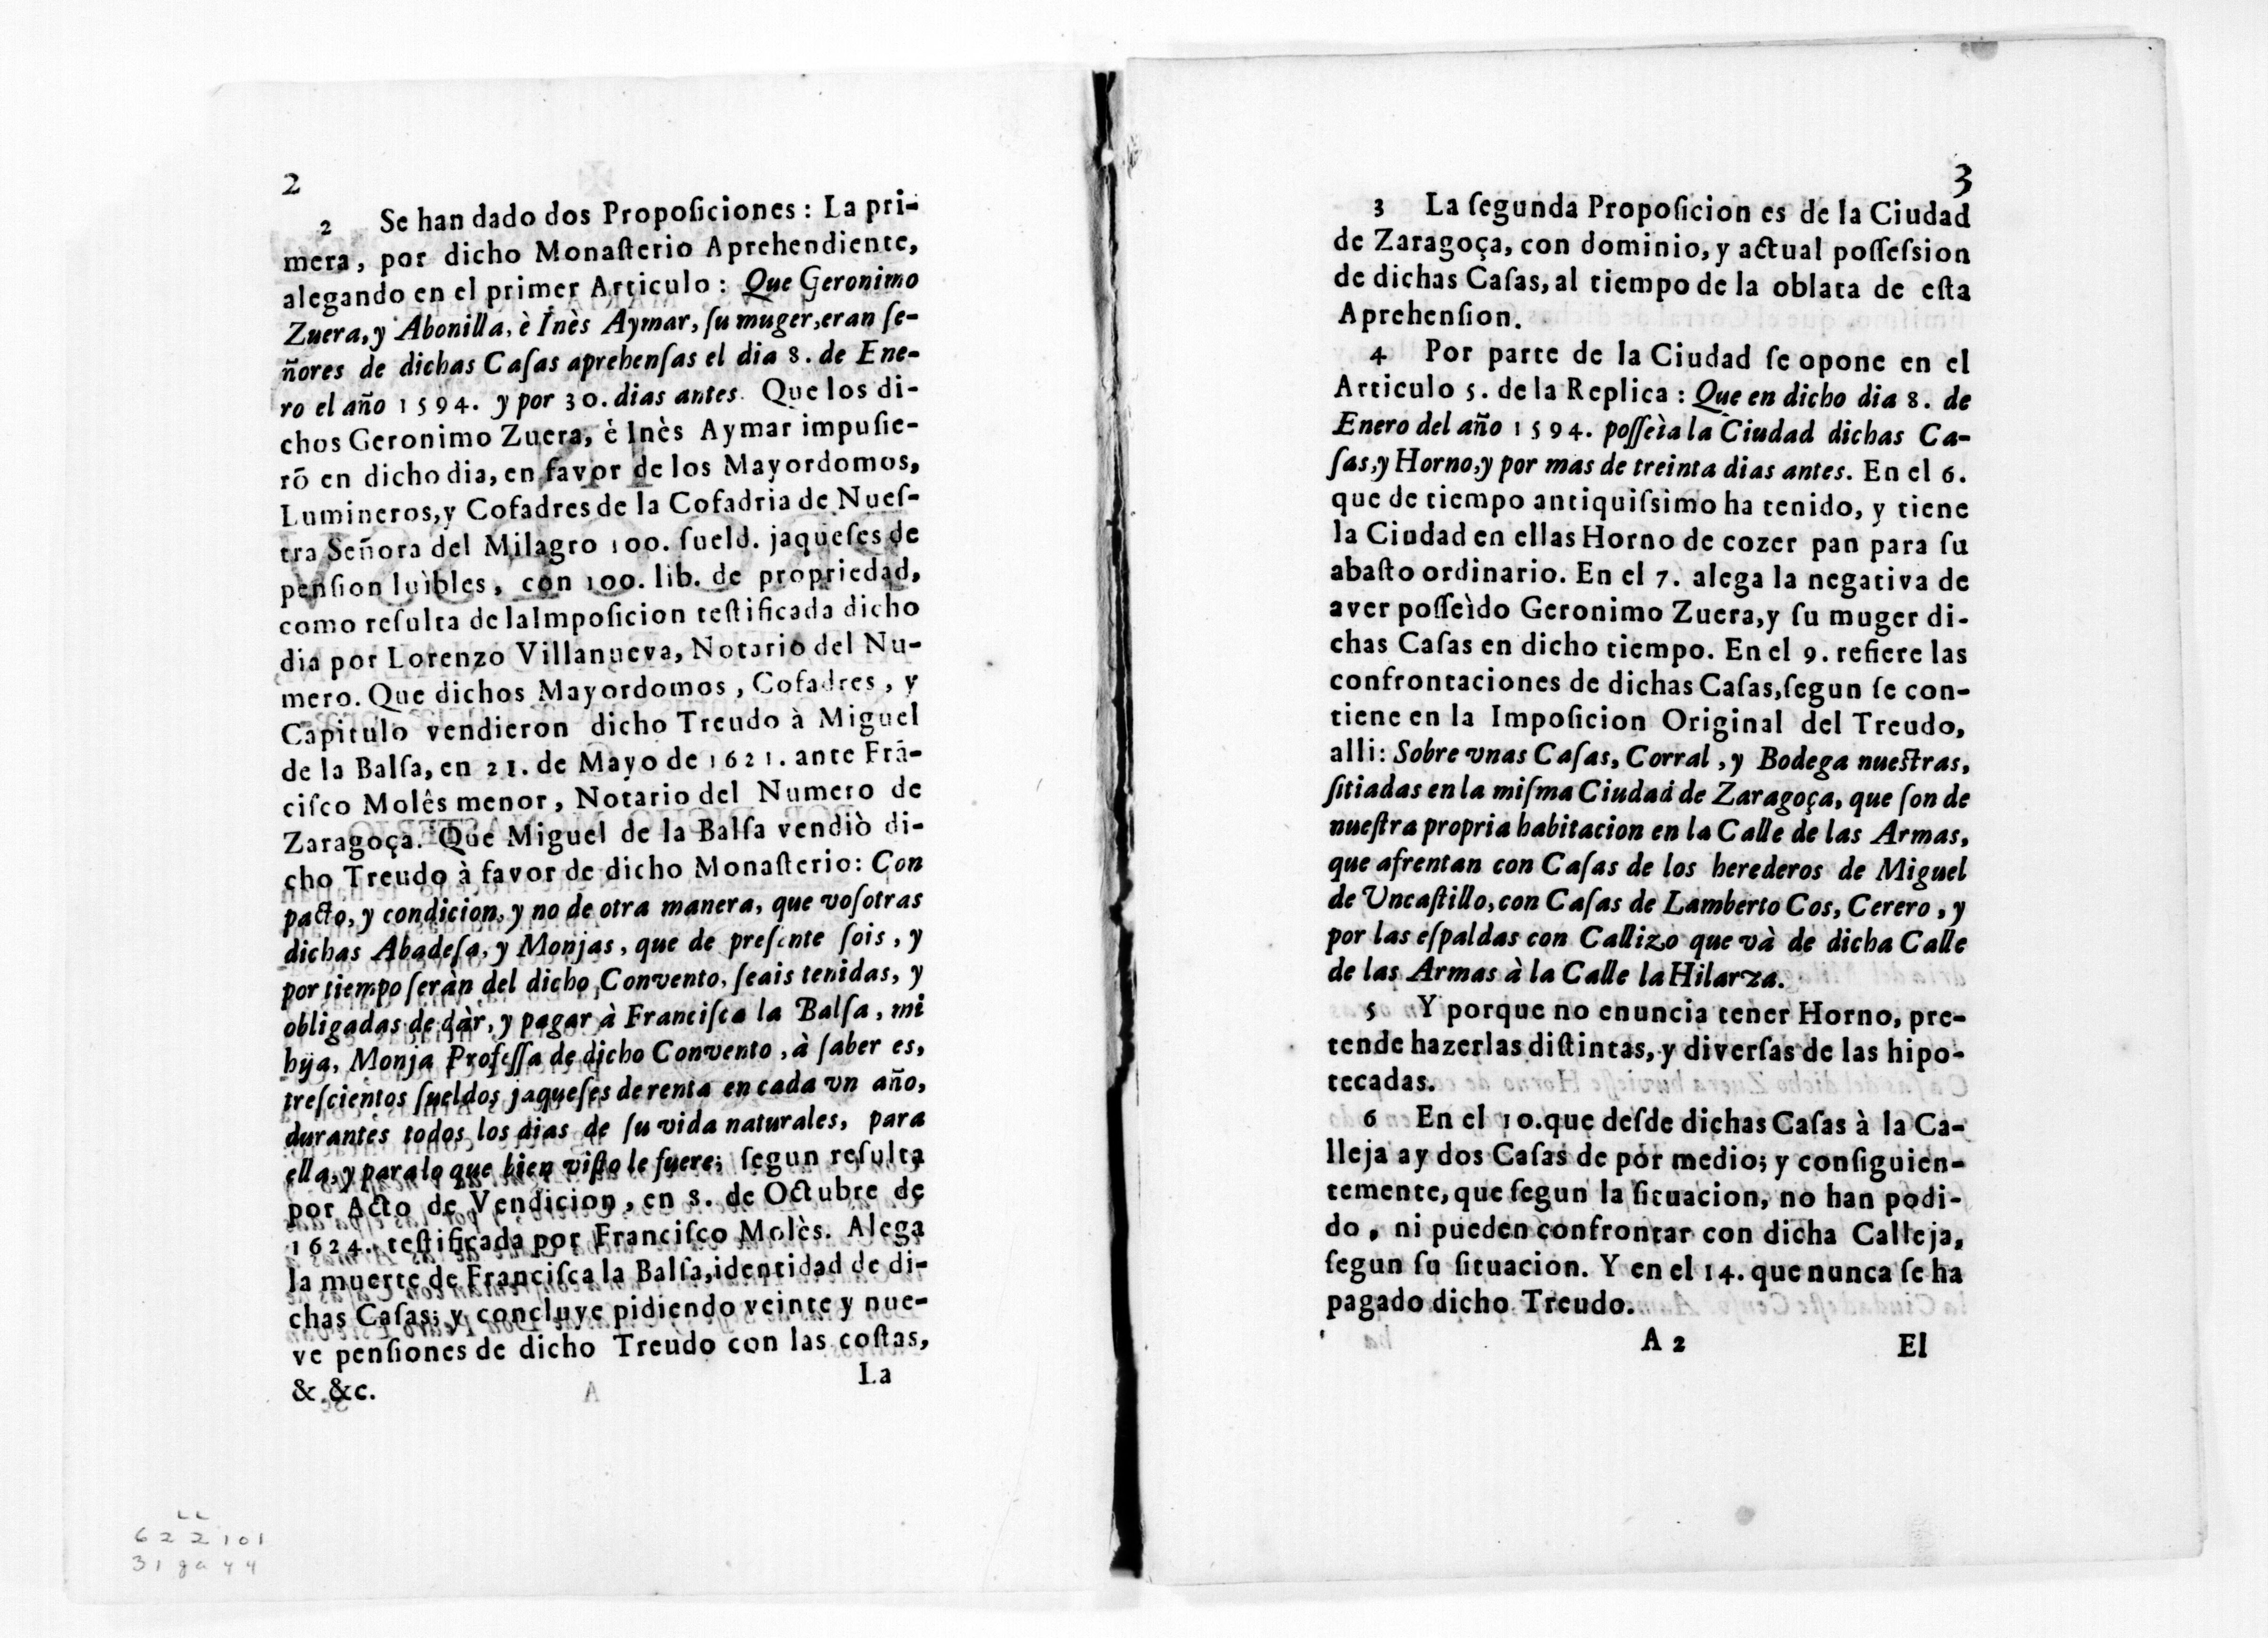 2
2 Se han dado dos Propoſiciones : La pri-
mera, por dicho Monaſterio Aprehendiente,
alegando en el primer Articulo : Que Geronimo
Zuera, y Abonilla, è Inès Aymar, ſu muger, eran ſe-
ñores de dichas Caſas aprehenſas el dia 8. de Ene-
ro el año 1594. y por 30. dias antes. Que los di-
chos Geronimo Zuera, è Inès Aymar impuſie-
rõ en dicho dia, en favor de los Mayordomos,
Lumineros, y Cofadres de la Cofadria de Nueſ-
tra Señora del Milagro 100. ſueld. jaqueſes de
penſion luìbles, con 100. lib. de propriedad,
como reſulta de la Impoſicion teſtificada dicho
dia por Lorenzo Villanueva, Notario del Nu-
mero. Que dichos Mayordomos, Cofadres, y
Capitulo vendieron dicho Treudo à Miguel
de la Balſa, en 21. de Mayo de 1621. ante Frã-
ciſco Molês menor, Notario del Numero de
Zaragoça. Que Miguel de la Balſa vendiò di-
cho Treudo à favor de dicho Monaſterio: Con
pacto, y condicion, y no de otra manera, que voſotras
dichas Abadeſa, y Monjas, que de preſente ſois, y
por tiempo ſeràn del dicho Convento, ſeais tenidas, y
obligadas de dàr, y pagar à Franciſca la Balſa, mi
hija, Monja Profeſſa de dicho Convento, à ſaber es,
treſcientos ſueldos jaqueſes de renta en cada vn año,
durantes todos los dias de ſu vida naturales, para
ella, y para lo que bien viſto le fuere; ſegun reſulta
por Acto de Vendicion, en 8. de Octubre de
1624. teſtificada por Franciſco Molès. Alega
la muerte de Franciſca la Balſa, identidad de di-
chas Caſas; y concluye pidiendo veinte y nue-
ve penſiones de dicho Treudo con las coſtas,
& &c.
La
622101
31 ga 44
3
3 La ſegunda Propoſicion es de la Ciudad
de Zaragoça, con dominio, y actual poſſeſsion
de dichas Caſas, al tiempo de la oblata de eſta
Aprehenſion.
4 Por parte de la Ciudad ſe opone en el
Articulo 5. de la Replica : Que en dicho dia 8. de
Enero del año 1594. poſſeìa la Ciudad dichas Ca-
ſas, y Horno, y por mas de treinta dias antes. En el 6.
que de tiempo antiquiſsimo ha tenido, y tiene
la Ciudad en ellas Horno de cozer pan para ſu
abaſto ordinario. En el 7. alega la negativa de
aver poſſeìdo Geronimo Zuera, y ſu muger di-
chas Caſas en dicho tiempo. En el 9. refiere las
confrontaciones de dichas Caſas, ſegun ſe con-
tiene en la Impoſicion Original del Treudo,
alli: Sobre vnas Caſas, Corral, y Bodega nueſtras,
ſitiadas en la miſma Ciudad de Zaragoça, que ſon de
nueſtra propria habitacion en la Calle de las Armas,
que afrentan con Caſas de los herederos de Miguel
de Uncaſtillo, con Caſas de Lamberto Cos, Cerero, y
por las eſpaldas con Callizo que và de dicha Calle
de las Armas à la Calle la Hilarza.
5 Y porque no enuncia tener Horno, pre-
tende hazerlas diſtintas, y diverſas de las hipo-
tecadas.
6 En el 10. que deſde dichas Caſas à la Ca-
lleja ay dos Caſas de por medio; y conſiguien-
temente, que ſegun la ſituacion, no han podi-
do, ni pueden confrontar con dicha Calleja,
ſegun ſu ſituacion. Y en el 14. que nunca ſe ha
pagado dicho Treudo.
A 2
El